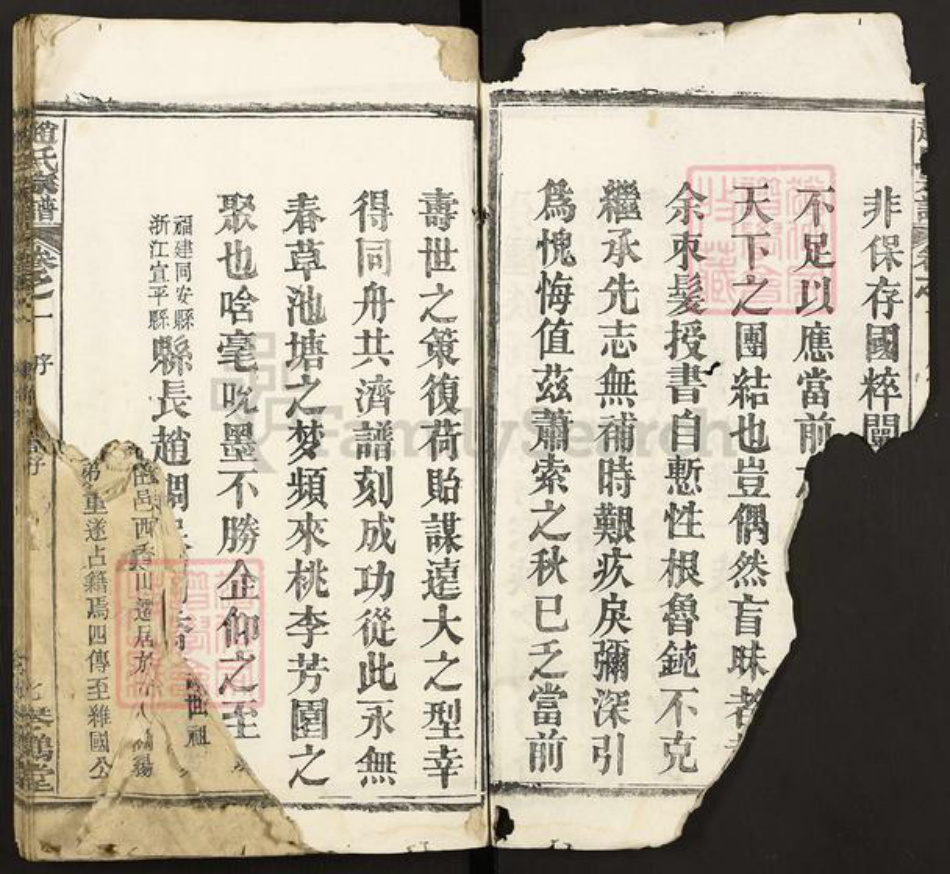 非保存國粹闡
不足以應當前
天下之團結也豈偶然盲昧者
余束髮授書自慙性根魯鈍不克
繼承先志無補時艱疚戾彌深引
爲愧悔值茲蕭索之秋已乏當前
壽世之策復荷貽謀遠大之型幸
得同舟共濟譜刻成功從此永無
春草池塘之梦頻來桃李芳園之
聚也啥毫吮墨不勝企仰之至
福建同安縣
浙江宣平縣
縣長趙
世祖
邑西香山遷居於
弟重遂占籍焉四傳至雜國公
趙氏宗譜
卷之一
序
七
琴鶴堂
FamilySearch